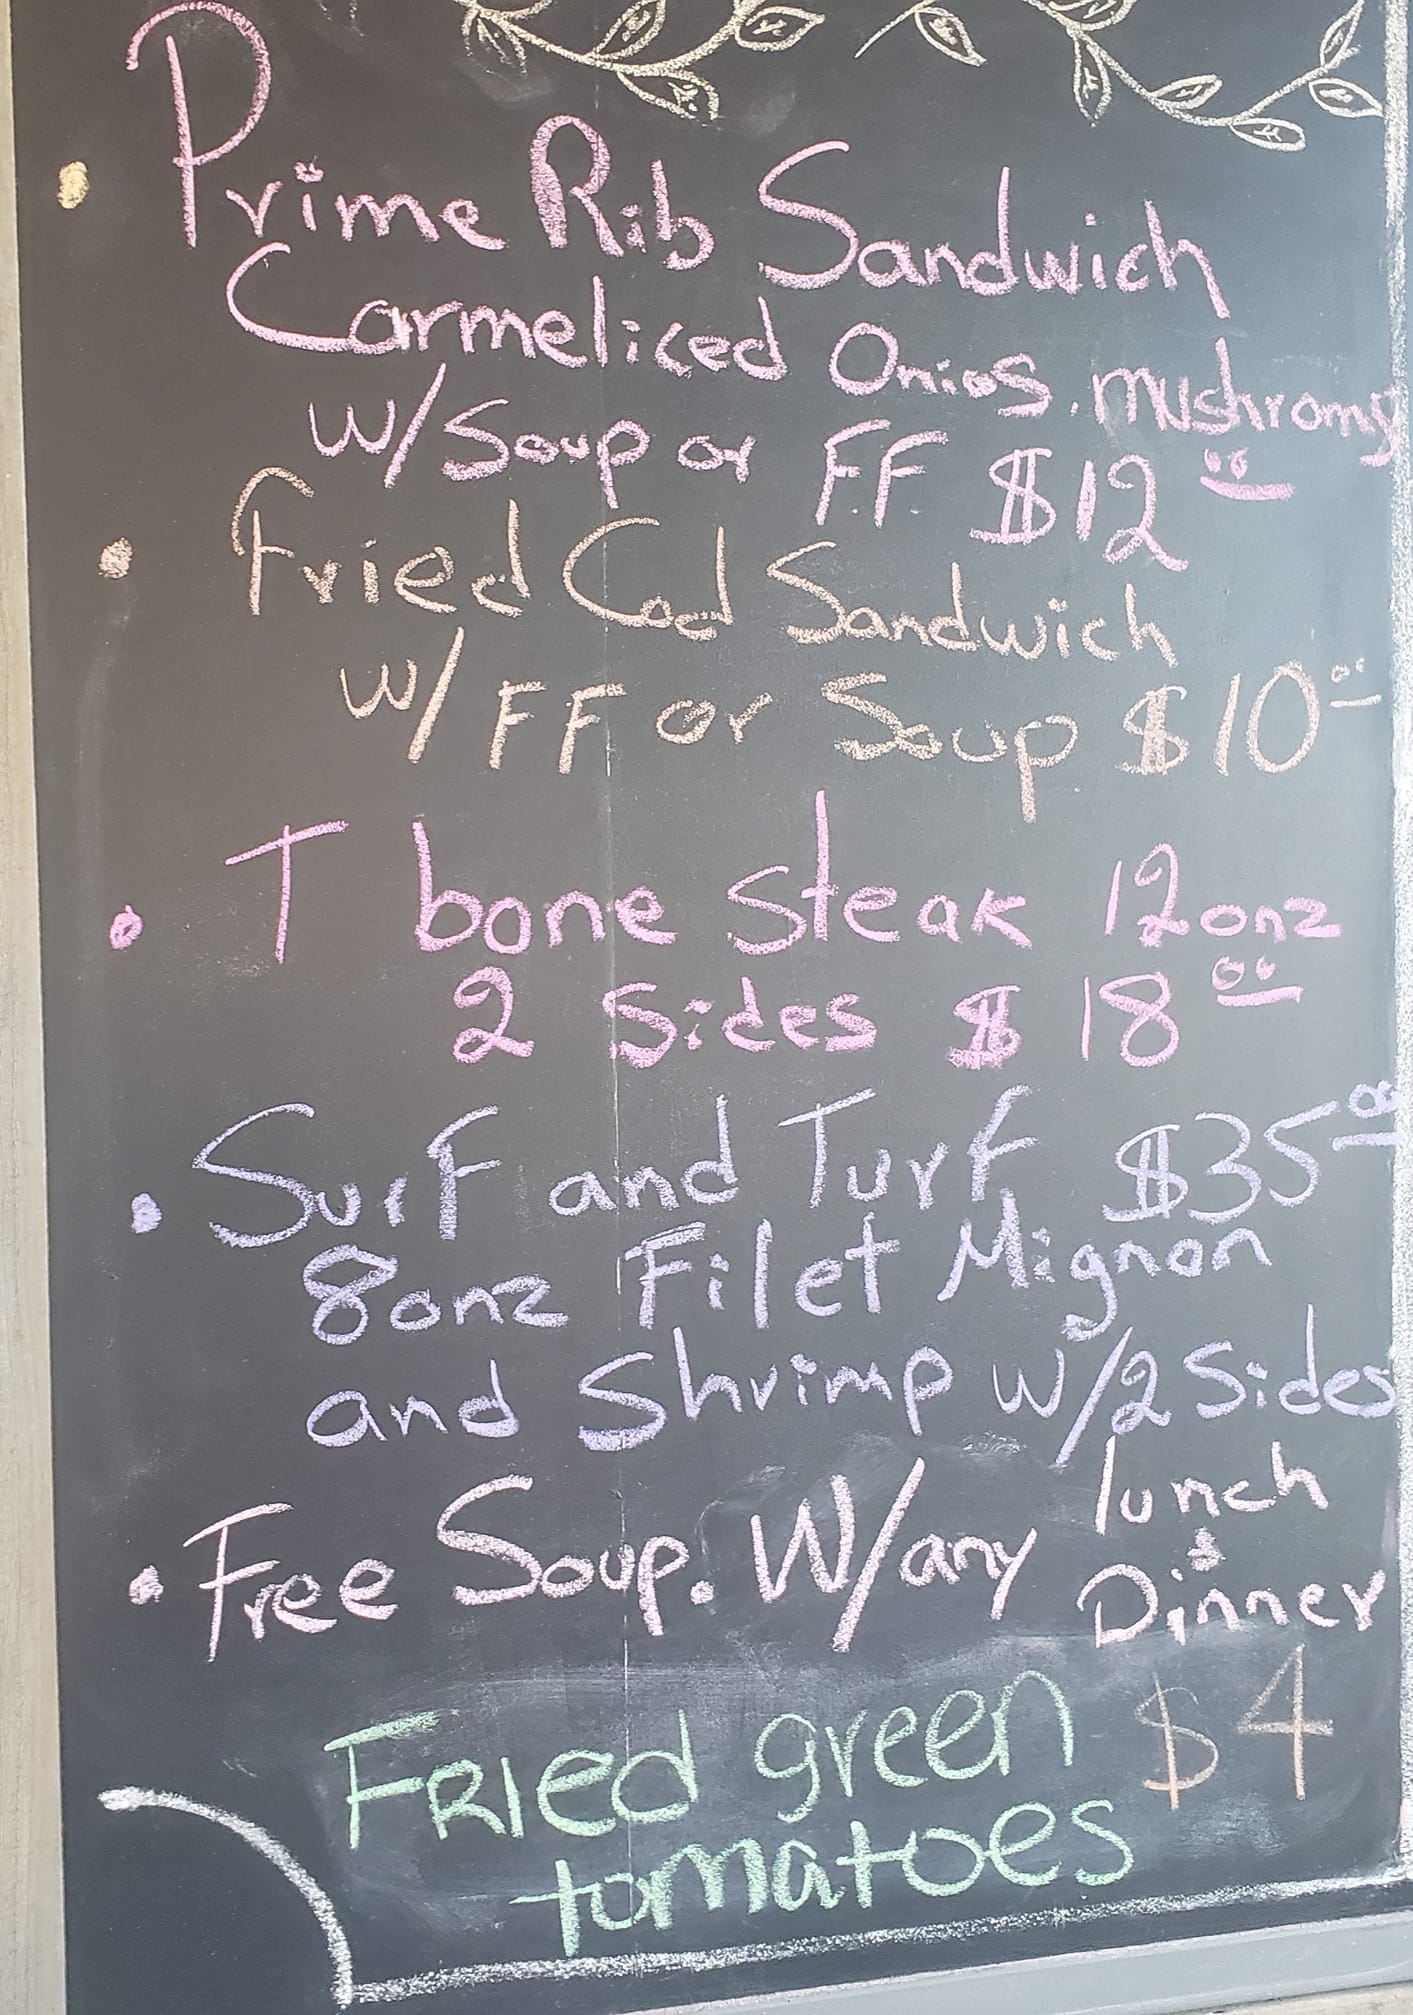 • Prime Rib Sandwich
Carmeliced Onios. mushroms
w/Soup or F.F. $12.00
• Fried Cod Sandwich
w/ FF or Soup $10.00
• T bone steak 12onz
2 sides $18.00
• Surf and Turf $35.00
8onz Filet Mignon
and shrimp w/2 Sides
• Free Soup. W/any lunch & Dinner
Fried green $4
tomatoes